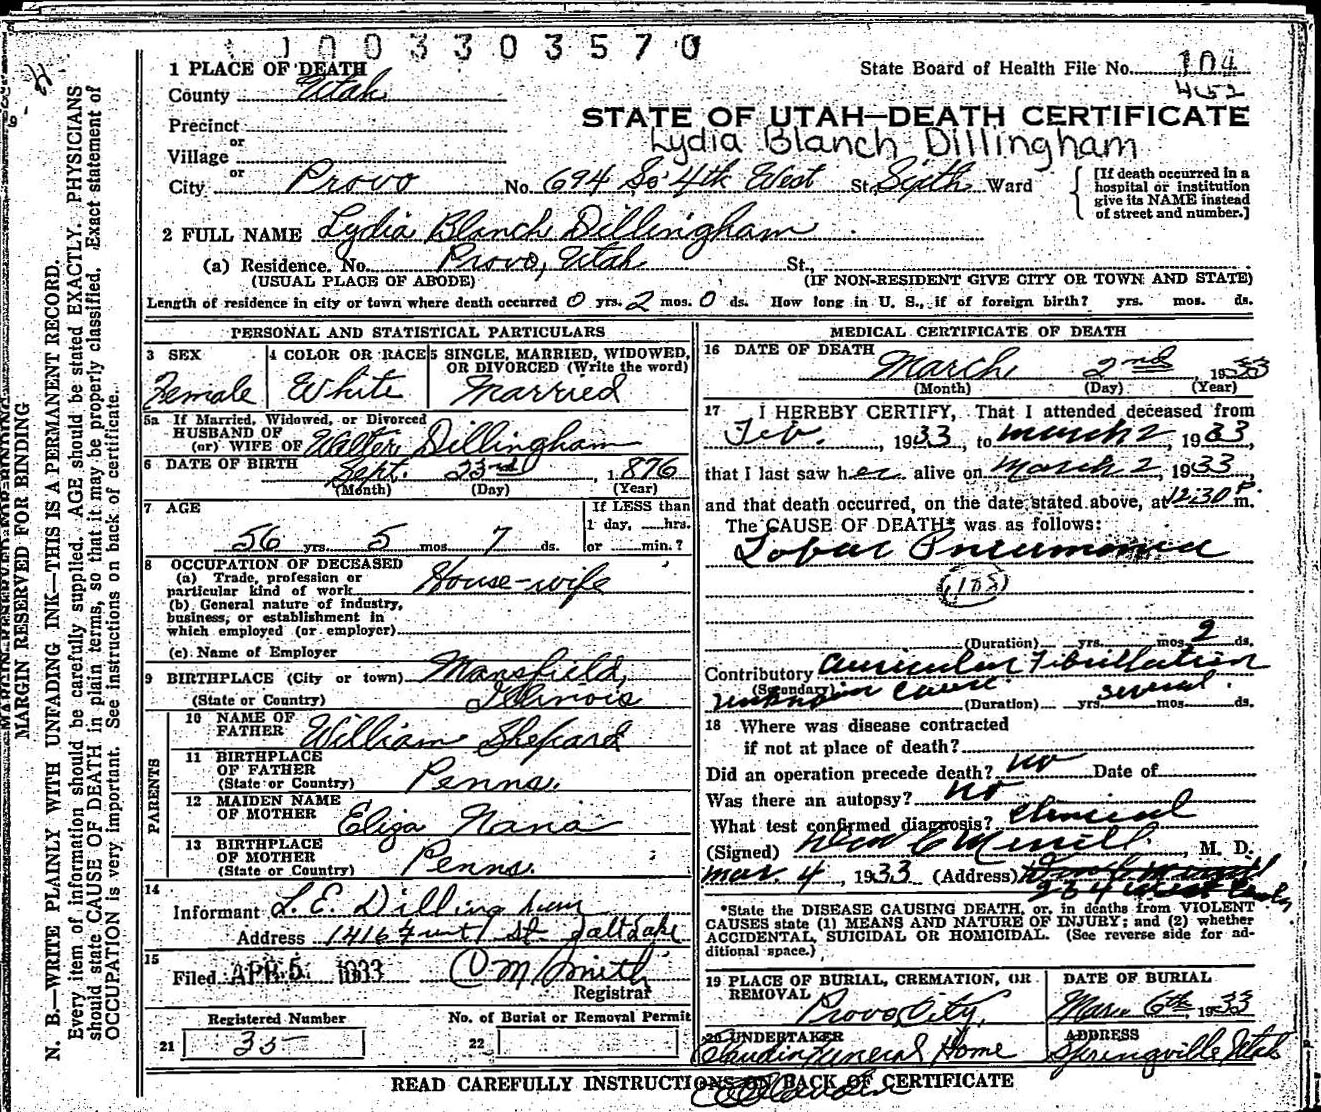 1003303570
1 PLACE OF DEATH
State Board of Health File No. 104
County Utah
452
STATE OF UTAH—DEATH CERTIFICATE
Precinct
or
Lydia Blanch Dillingham
Village
or
City Provo No. 694 So 4th West St., Sixth Ward
[If death occurred in a
hospital or institution
give its NAME instead
of street and number.]
2 FULL NAME Lydia Blanch Dillingham
(a) Residence. No. Provo, Utah St.,
(USUAL PLACE OF ABODE) (IF NON-RESIDENT GIVE CITY OR TOWN AND STATE)
Length of residence in city or town where death occurred 0 yrs. 2 mos. 0 ds. How long in U. S., if of foreign birth? yrs. mos. ds.
PERSONAL AND STATISTICAL PARTICULARS
3 SEX
Female
4 COLOR OR RACE
White
5 SINGLE, MARRIED, WIDOWED,
OR DIVORCED (Write the word)
Married
5a If Married, Widowed, or Divorced
HUSBAND OF
(or) WIFE OF Walter Dillingham
6 DATE OF BIRTH Sept. 23rd, 1876
(Month) (Day) (Year)
7 AGE
56 yrs. 5 mos. 7 ds.
If LESS than
1 day, hrs.
or min.?
8 OCCUPATION OF DECEASED
(a) Trade, profession or
particular kind of work House-wife
(b) General nature of industry,
business, or establishment in
which employed (or employer)
(c) Name of Employer
9 BIRTHPLACE (City or town) Mansfield,
(State or Country) Illinois
PARENTS
10 NAME OF
FATHER William Shepard
11 BIRTHPLACE
OF FATHER
(State or Country) Penns.
12 MAIDEN NAME
OF MOTHER Eliza Nana
13 BIRTHPLACE
OF MOTHER
(State or Country) Penns.
14
Informant L. E. Dillingham
Address 1416 St. Salt Lake
15
Filed APR 5 1933 Smith
Registrar
Registered Number
21 35
No. of Burial or Removal Permit
22
MEDICAL CERTIFICATE OF DEATH
16 DATE OF DEATH
March 2nd, 1933
(Month) (Day) (Year)
17 I HEREBY CERTIFY, That I attended deceased from
Feb., 1933, to March 2, 1933,
that I last saw her alive on March 2, 1933,
and that death occurred, on the date stated above, at 12:30 P. m.
The CAUSE OF DEATH* was as follows:
Lobar Pneumonia
(108)
(Duration) yrs. mos. 9 ds.
Contributory Auricular Fibrillation
(Secondary)
unknown cause (Duration) yrs. several mos. ds.
18 Where was disease contracted
if not at place of death?
Did an operation precede death? no Date of
Was there an autopsy? no
What test confirmed diagnosis? Clinical
(Signed) Merrill, M. D.
Mar. 4, 1933 (Address)
*State the DISEASE CAUSING DEATH, or, in deaths from VIOLENT
CAUSES state (1) MEANS AND NATURE OF INJURY; and (2) whether
ACCIDENTAL, SUICIDAL OR HOMICIDAL. (See reverse side for ad-
ditional space.)
19 PLACE OF BURIAL, CREMATION, OR
REMOVAL
Provo City,
DATE OF BURIAL
Mar. 6th 1933
20 UNDERTAKER
Claudin Funeral Home
ADDRESS
Springville Utah
READ CAREFULLY INSTRUCTIONS ON BACK OF CERTIFICATE
MARGIN RESERVED FOR BINDING
N. B.—WRITE PLAINLY WITH UNFADING INK—THIS IS A PERMANENT RECORD.
Every item of information should be carefully supplied. AGE should be stated EXACTLY. PHYSICIANS
should state CAUSE OF DEATH in plain terms, so that it may be properly classified. Exact statement of
OCCUPATION is very important. See instructions on back of certificate.